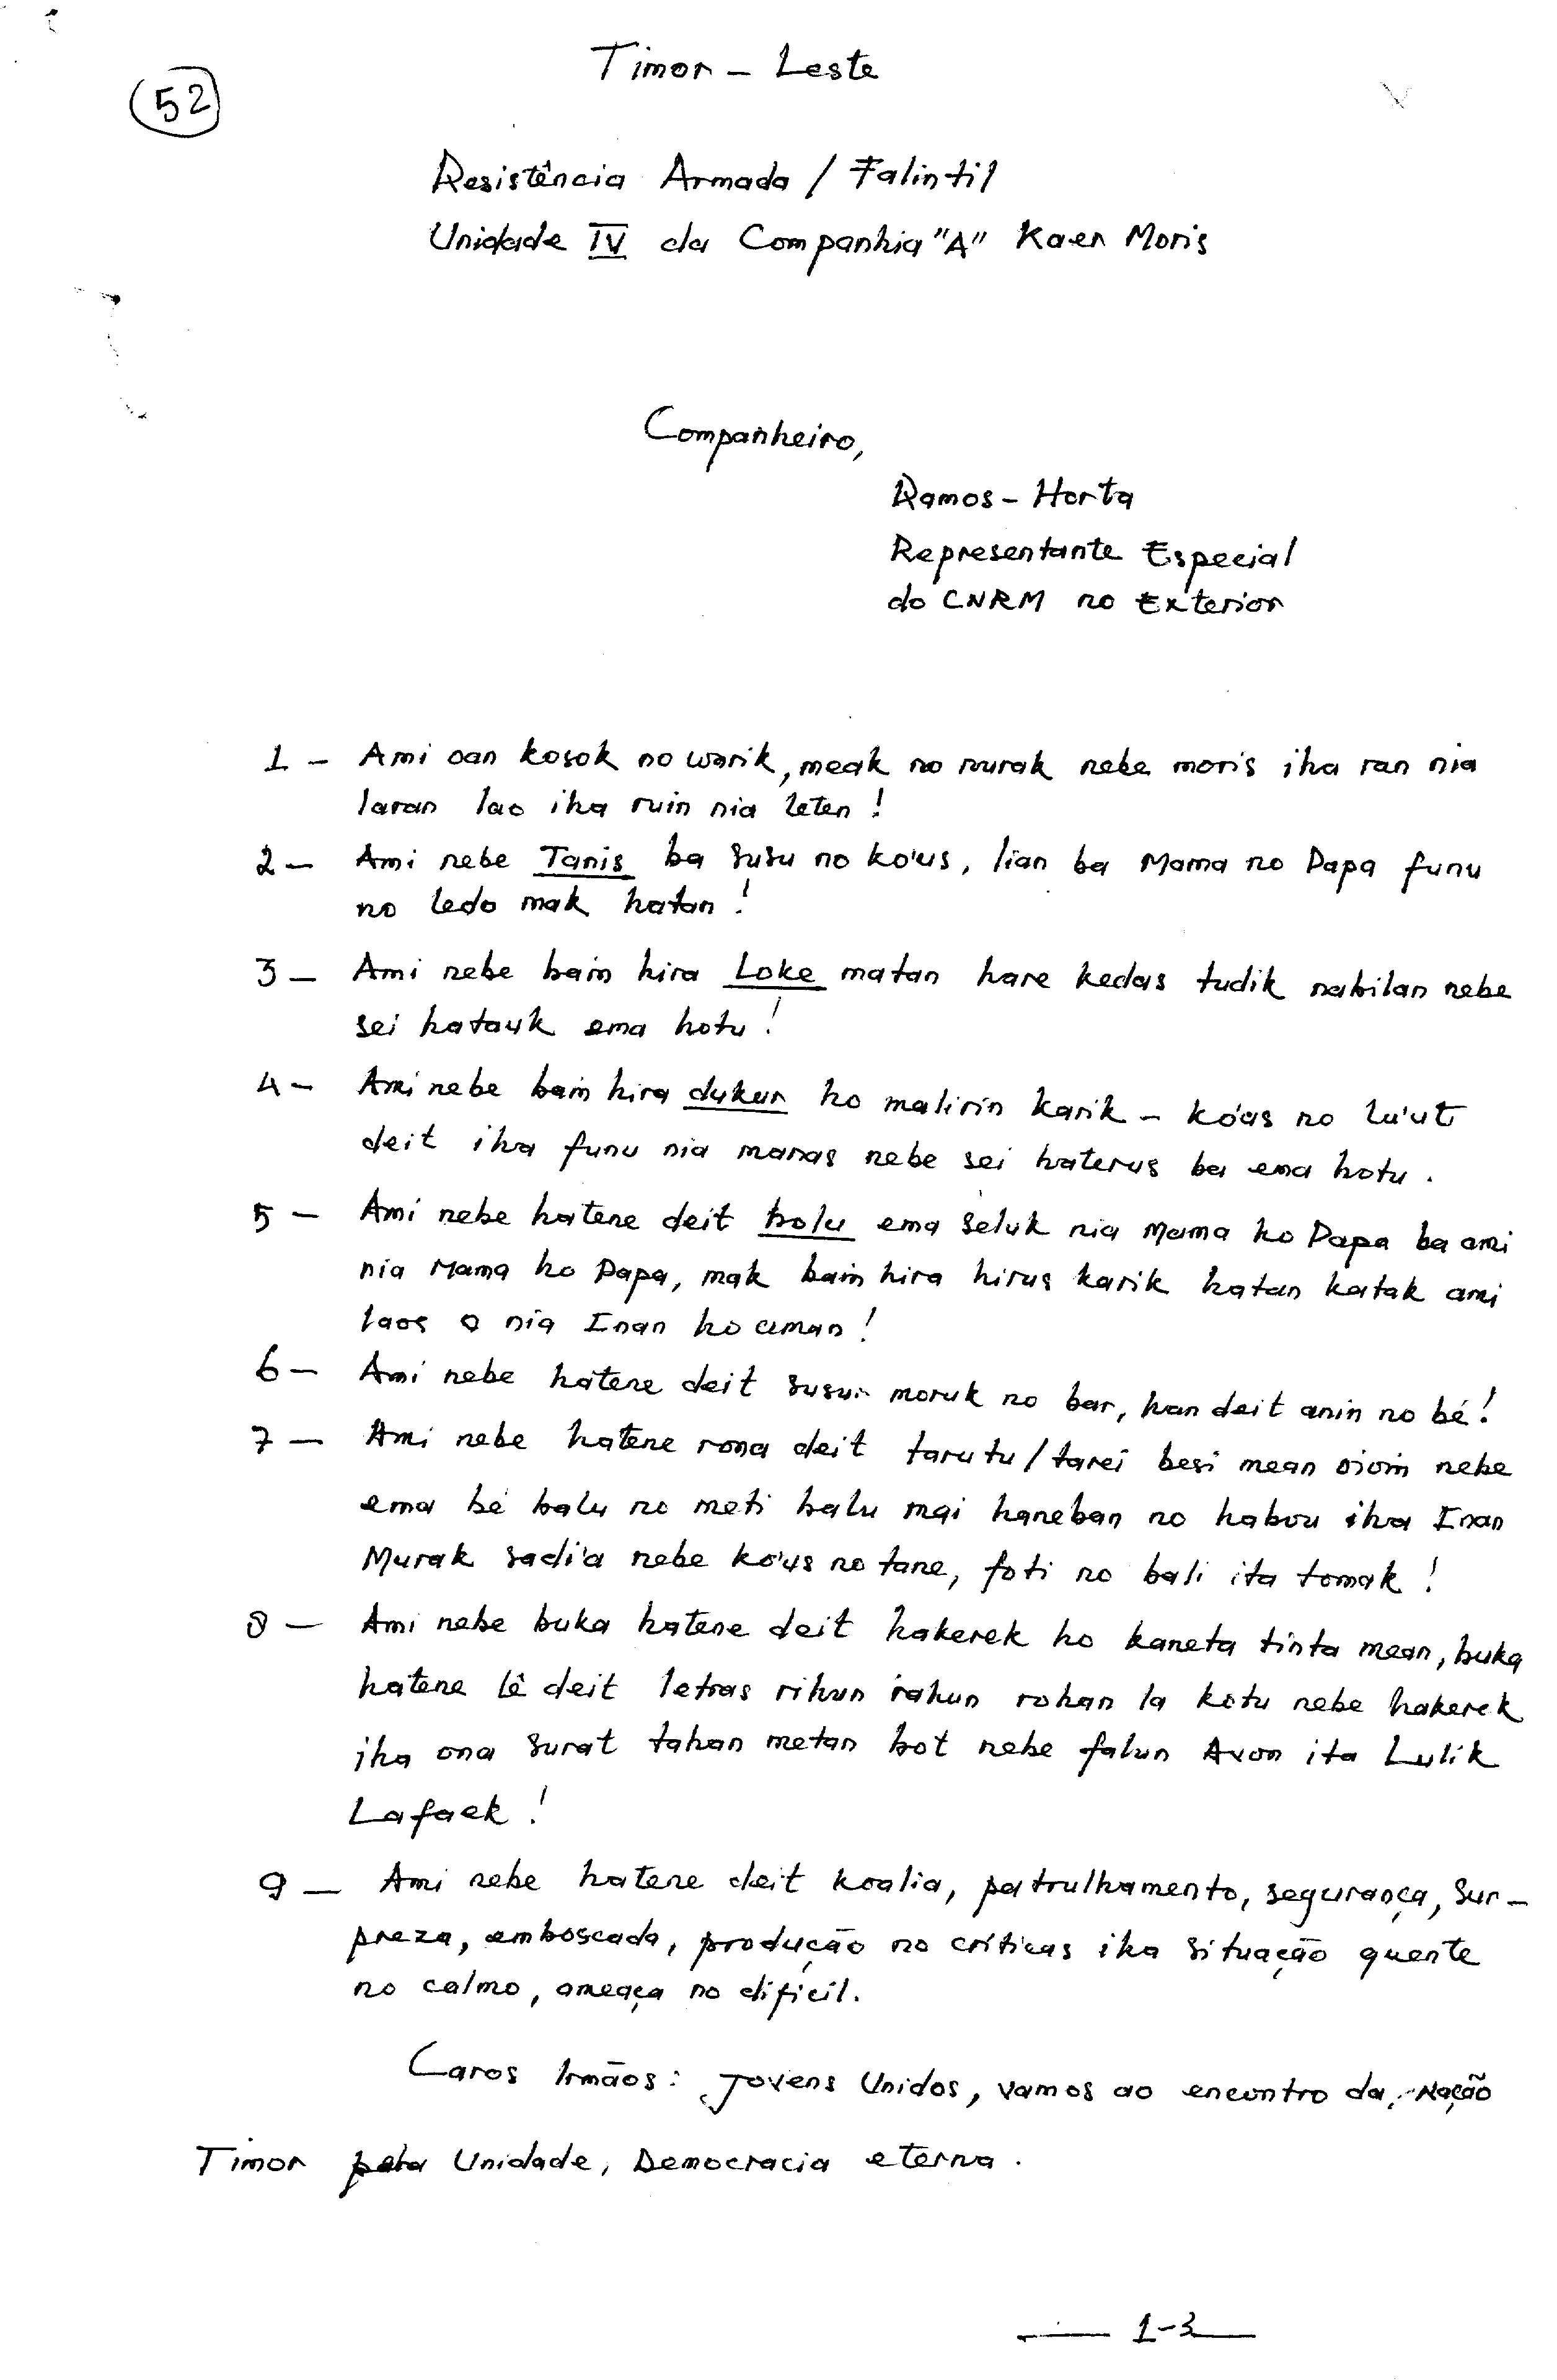 Timor - Leste
52
Resistência Armada / Falintil
Unidade IV da Companhia "A" Kaer Moris
Companheiro,
Ramos - Horta
Representante Especial
do CNRM no Exterior
1 - Ami oan kosok no warik, meak no nurak nebe moris iha ran nia
laran lao iha ruin nia leten !
2 - Ami nebe Tanis ba susu no ko'us, lian ba Mama no Papa funu
no ledo mak hatan !
3 - Ami nebe bain hira Loke matan hare kedas tudik nabilan nebe
sei hatauk ema hotu !
4 - Ami nebe bain hira dukur ho malirin karik - ko'us no lu'ut
deit iha funu nia manas nebe sei haterus ba ema hotu .
5 - Ami nebe hatene deit bolu ema seluk nia Mama ho Papa ba ami
nia Mama ho Papa, mak bain hira hirus karik hatan katak ami
laos o nia Inan ho aman !
6 - Ami nebe hatene deit susun moruk no bar, han deit anin no bé !
7 - Ami nebe hatene rona deit tarutu / tarei besi mean oioin nebe
ema bé balu no meti balu mai haneban no habou iha Inan
Murak sadi'a nebe ko'us no tane, foti no bali ita tomak !
8 - Ami nebe buka hatene deit hakerek ho kaneta tinta mean, buka
hatene lê deit letras rihun rahun rohan la kotu nebe hakerek
iha ona surat tahan metan bot nebe falun Avon ita Lulik
Lafaek !
9 - Ami nebe hatene deit koalia, patrulhamento, segurança, sur-
preza, emboscada, produção no críticas iha situação quente
no calmo, ameaça no dificil.
Caros Irmãos : Jovens Unidos, vamos ao encontro da Nação
Timor pela Unidade, Democracia eterna .
1-3